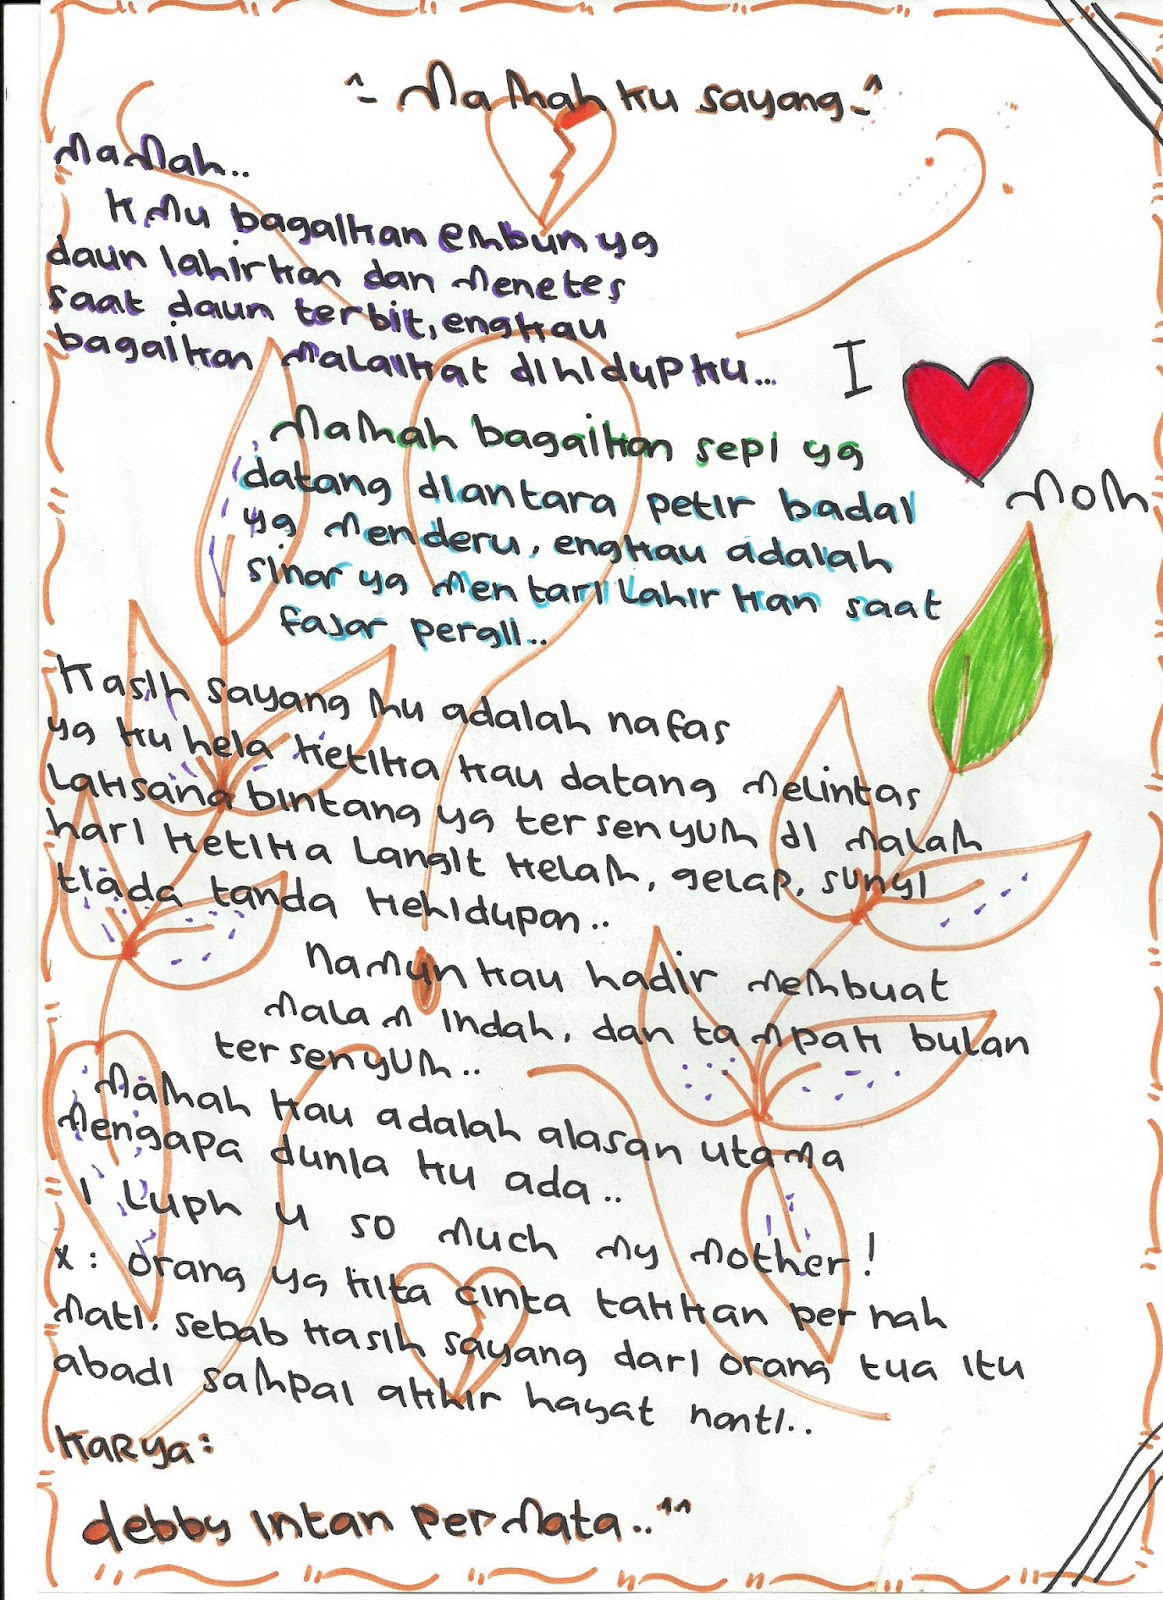 ^- Mamah ku sayang -^
Mamah..
Kmu bagaikan embun yg
daun lahirkan dan menetes
saat daun terbit, engkau
bagaikan malaikat dihidupku...
I
Mom
Mamah bagaikan sepi yg
datang diantara petir badai
yg menderu, engkau adalah
sinar yg mentari lahirkan saat
fajar pergii..
Kasih sayang mu adalah nafas
yg ku hela ketika kau datang melintas
laksana bintang yg tersenyum di malam
hari ketika langit kelam, gelap, sunyi
tiada tanda kehidupan..
Namun kau hadir membuat
malam indah, dan tampak bulan
tersenyum..
Mamah kau adalah alasan utama
mengapa dunia ku ada..
I Luph u so much my mother!
x : orang yg kita cinta takkan pernah
mati. sebab kasih sayang dari orang tua itu
abadi sampai akhir hayat nanti..
Karya:
debby intan permata..^^